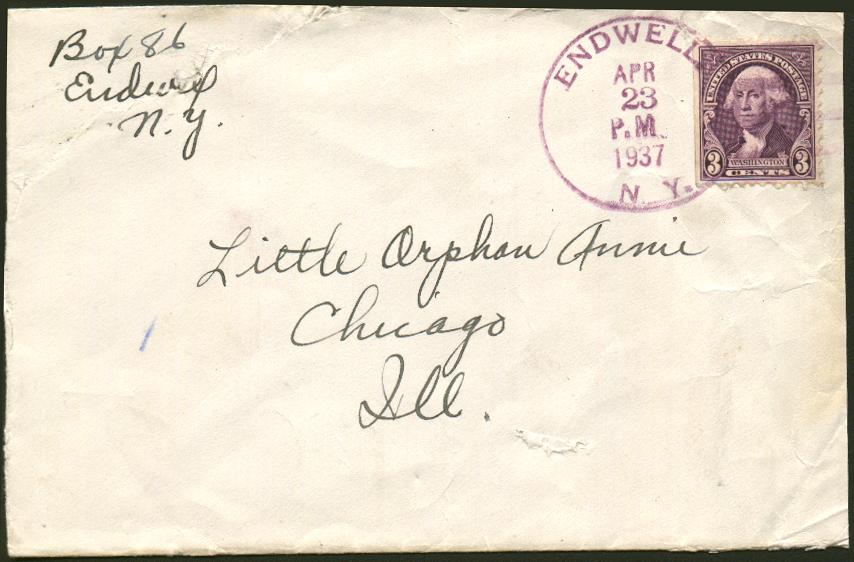 Box 86
Endwell
N.Y.
ENDWELL
APR
23
P.M.
1937
N. Y.
UNITED STATES POSTAGE
WASHINGTON
3 CENTS 3
Little Orphan Annie
Chicago
Ill.